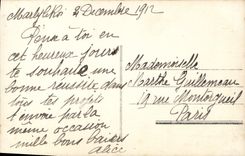 Marly le Roi 24 Decembre 1912
Pense à toi en
cet heureux jours
te souhaite une
bonne reussite dans
tous tes projets
t'envoie par la
meme occasion
mille bons baisers
alice
Mademoiselle
Marthe Guillemeau
19 rue Montorgueil
Paris